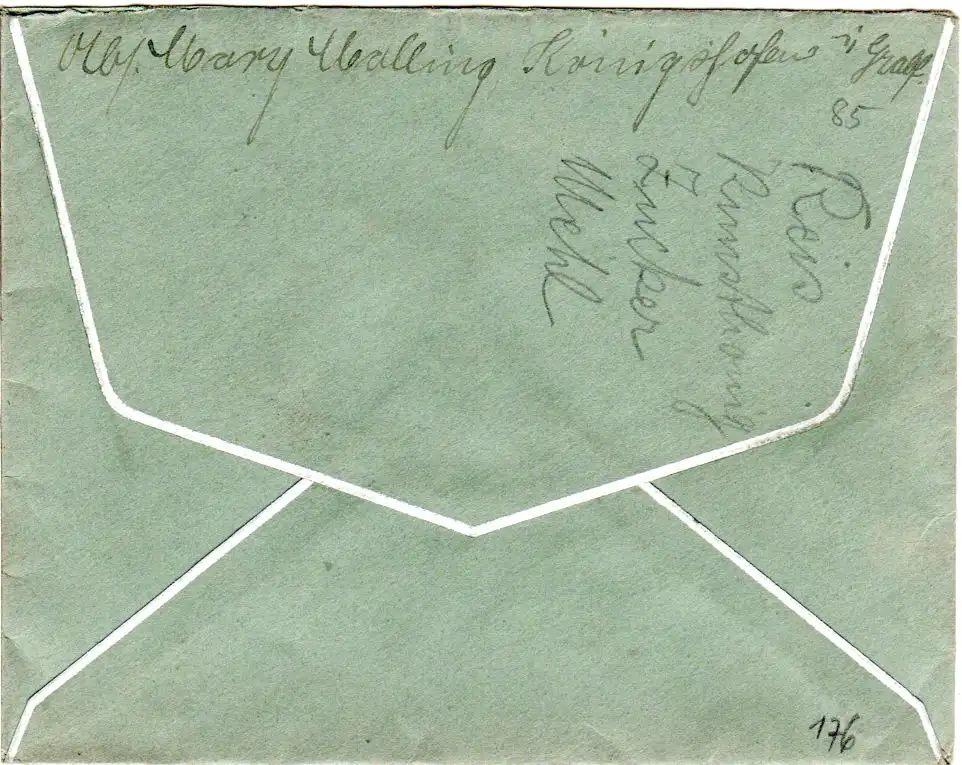 Abs. Mary Walling Königshofen i/ Grabf.
85
Reis
Kunsthonig
Zucker
Mehl
176